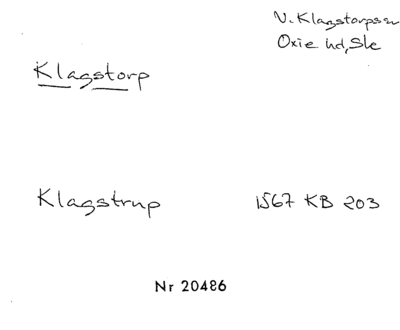 V. Klagstorps sn
Oxie hd, Sk
Klagstorp
Klagstrup 1567 KB 203
Nr 20486